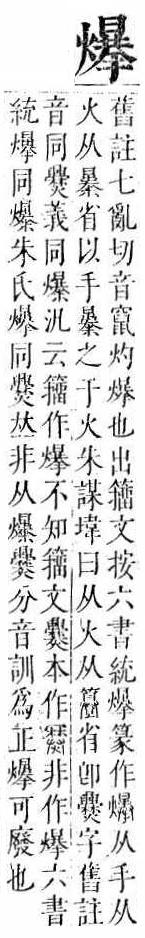 舊註七亂切音竄灼爆也出籒文按六書統篆作从手从
火从㬥省以手㬥之于火朱謀㙔曰从火从簒省卽爨字舊註
音同爨義同爆汎云籒作不知籒文爨本作非作六書
統同爆朱氏同爨𠀤非从爆爨分音訓爲正可廢也